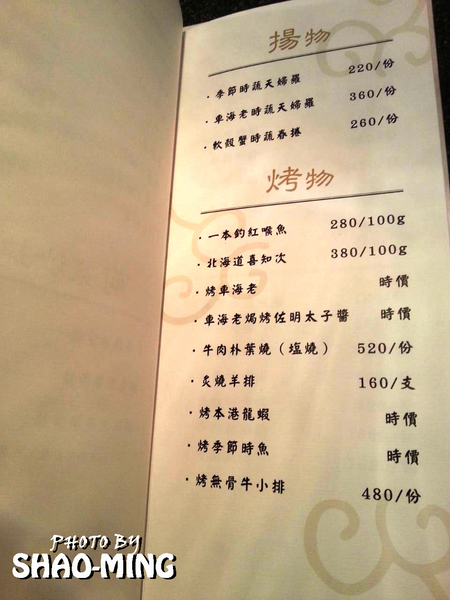 揚物
・季節時蔬天婦羅 220/份
・車海老時蔬天婦羅 360/份
・軟殼蟹時蔬春捲 260/份
烤物
・一本釣紅喉魚 280/100g
・北海道喜知次 380/100g
・烤車海老 時價
・車海老焗烤佐明太子醬 時價
・牛肉朴葉燒（塩燒） 520/份
・炙燒羊排 160/支
・烤本港龍蝦 時價
・烤季節時魚 時價
・烤無骨牛小排 480/份
PHOTO BY
SHAO-MING